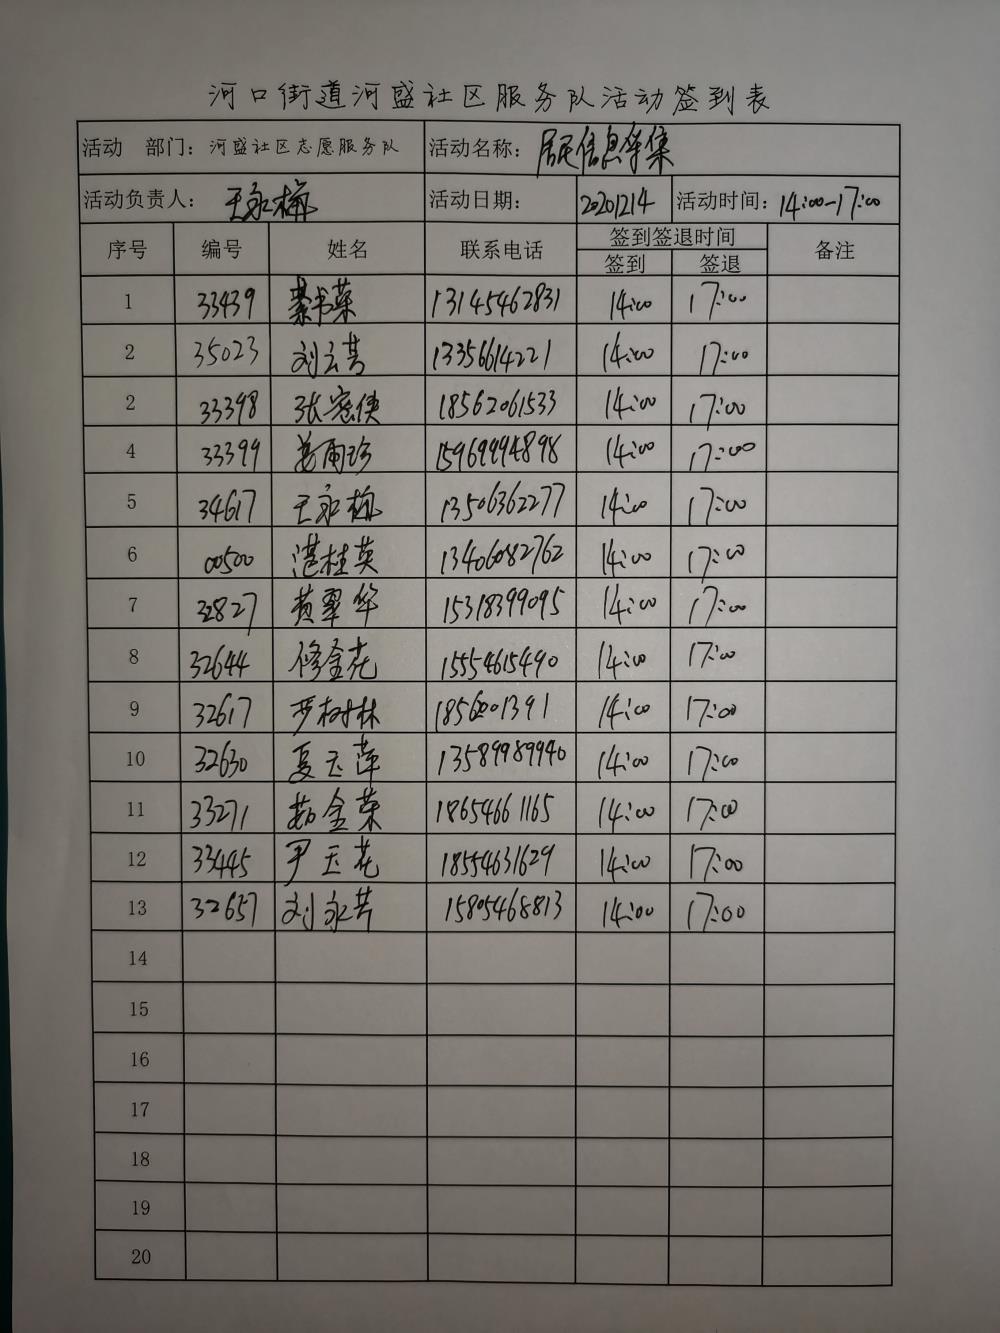 河口街道河盛社区服务队活动签到表
活动 部门：河盛社区志愿服务队 活动名称：居民信息采集
活动负责人：王永梅 活动日期：20201214 活动时间：14:00-17:00
序号 编号 姓名 联系电话 签到签退时间 备注
签到 签退
1 33439 綦书荣 13145462831 14:00 17:00
2 35023 刘云芳 13356614221 14:00 17:00
2 33398 张宏侠 18562061533 14:00 17:00
4 33399 姜雨珍 15969994898 14:00 17:00
5 34617 王永梅 13506362277 14:00 17:00
6 00500 湛桂英 13406082762 14:00 17:00
7 32827 黄翠华 15318399095 14:00 17:00
8 32644 修金花 15554615490 14:00 17:00
9 32617 严树林 14:00 17:00
10 32630 夏玉萍 13589989940 14:00 17:00
11 33271 茹金荣 18654661165 14:00 17:00
12 33445 尹玉花 18554631629 14:00 17:00
13 32657 刘永芳 15805468813 14:00 17:00
14
15
16
17
18
19
20